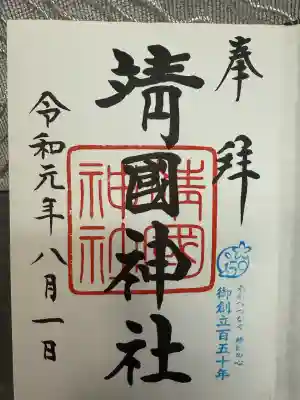 奉拝
靖國神社
靖國神社
御創立百五十年
令和元年八月一日